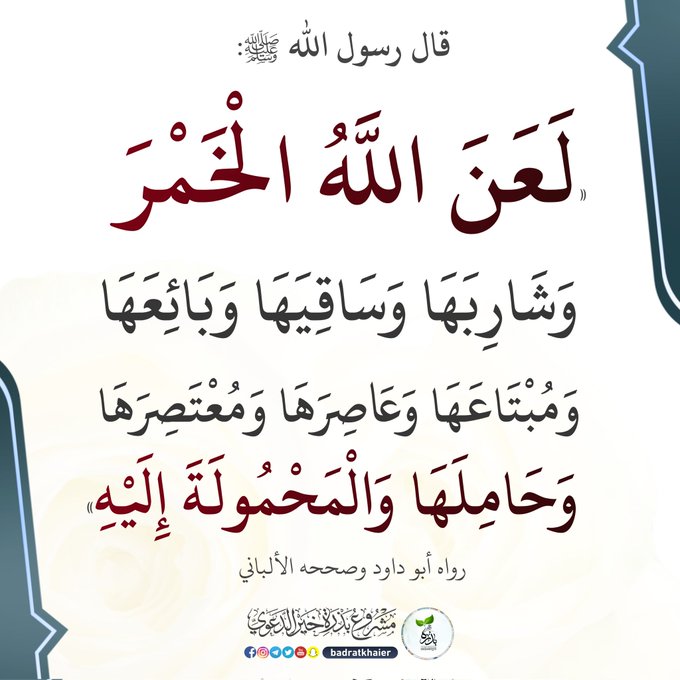 قال رسول الله ﷺ:
((لَعَنَ اللَّهُ الْخَمْرَ
وَشَارِبَهَا وَسَاقِيَهَا وَبَائِعَهَا
وَمُبْتَاعَهَا وَعَاصِرَهَا وَمُعْتَصِرَهَا
وَحَامِلَهَا وَالْمَحْمُولَةَ إِلَيْهِ))
رواه أبو داود وصححه الألباني
مشروع بذرة خير الدعوي
badratkhaier
بذرة